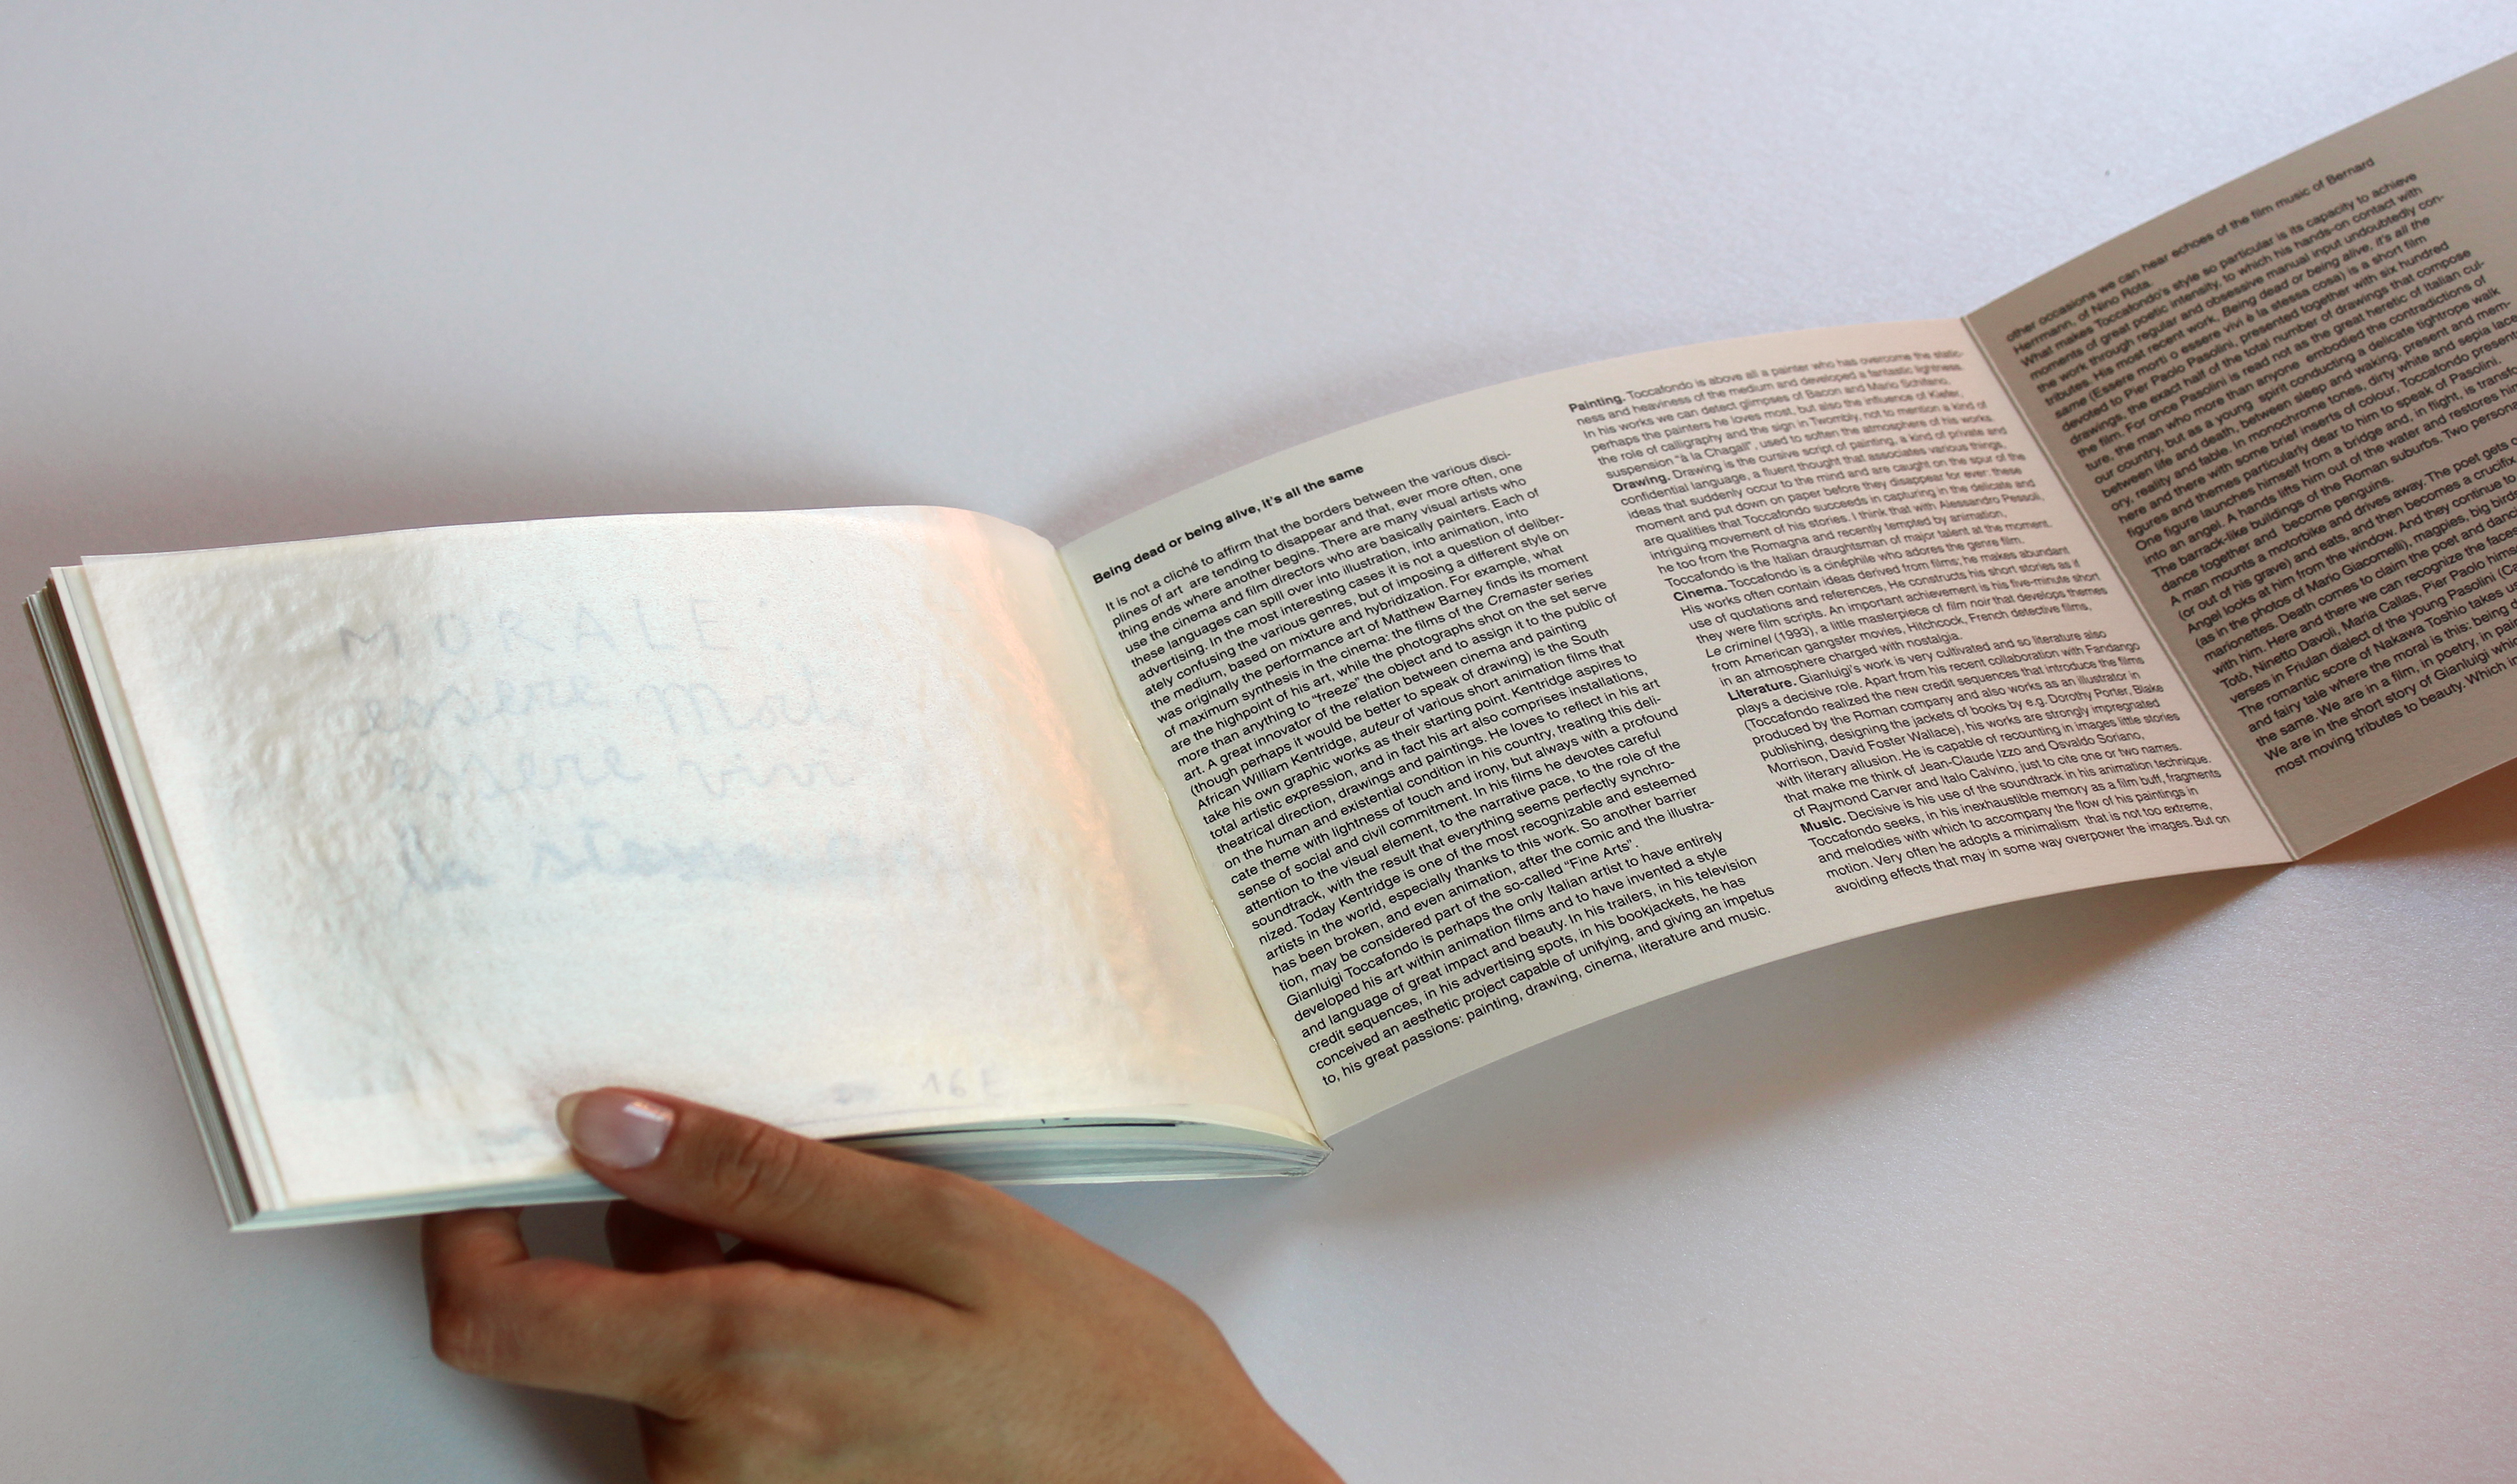 MORALE:
essere morti
essere vivi
la stessa
16 F
Being dead or being alive, it's all the same
It is not a cliché to affirm that the borders between the various disci-
plines of art are tending to disappear and that, ever more often, one
thing ends where another begins. There are many visual artists who
use the cinema and film directors who are basically painters. Each of
these languages can spill over into illustration, into animation, into
advertising. In the most interesting cases it is not a question of deliber-
ately confusing the various genres, but of imposing a different style on
the medium, based on mixture and hybridization. For example, what
was originally the performance art of Matthew Barney finds its moment
of maximum synthesis in the cinema: the films of the Cremaster series
are the highpoint of his art, while the photographs shot on the set serve
more than anything to "freeze" the object and to assign it to the public of
art. A great innovator of the relation between cinema and painting
(though perhaps it would be better to speak of drawing) is the South
African William Kentridge, auteur of various short animation films that
take his own graphic works as their starting point. Kentridge aspires to
total artistic expression, and in fact his art also comprises installations,
theatrical direction, drawings and paintings. He loves to reflect in his art
on the human and existential condition in his country, treating this deli-
cate theme with lightness of touch and irony, but always with a profound
sense of social and civil commitment. In his films he devotes careful
attention to the visual element, to the narrative pace, to the role of the
soundtrack, with the result that everything seems perfectly synchro-
nized. Today Kentridge is one of the most recognizable and esteemed
artists in the world, especially thanks to this work. So another barrier
has been broken, and even animation, after the comic and the illustra-
tion, may be considered part of the so-called "Fine Arts".
Gianluigi Toccafondo is perhaps the only Italian artist to have entirely
developed his art within animation films and to have invented a style
and language of great impact and beauty. In his trailers, in his television
credit sequences, in his advertising spots, in his bookjackets, he has
conceived an aesthetic project capable of unifying, and giving an impetus
to, his great passions: painting, drawing, cinema, literature and music.
Painting. Toccafondo is above all a painter who has overcome the static-
ness and heaviness of the medium and developed a fantastic lightness.
In his works we can detect glimpses of Bacon and Mario Schifano,
perhaps the painters he loves most, but also the influence of Kiefer,
the role of calligraphy and the sign in Twombly, not to mention a kind of
suspension "à la Chagall", used to soften the atmosphere of his works.
Drawing. Drawing is the cursive script of painting, a kind of private and
confidential language, a fluent thought that associates various things,
ideas that suddenly occur to the mind and are caught on the spur of the
moment and put down on paper before they disappear for ever: these
are qualities that Toccafondo succeeds in capturing in the delicate and
intriguing movement of his stories. I think that with Alessandro Pessoli,
he too from the Romagna and recently tempted by animation,
Toccafondo is the Italian draughtsman of major talent at the moment.
Cinema. Toccafondo is a cinéphile who adores the genre film.
His works often contain ideas derived from films; he makes abundant
use of quotations and references, He constructs his short stories as if
they were film scripts. An important achievement is his five-minute short
Le criminel (1993), a little masterpiece of film noir that develops themes
from American gangster movies, Hitchcock, French detective films,
in an atmosphere charged with nostalgia.
Literature. Gianluigi's work is very cultivated and so literature also
plays a decisive role. Apart from his recent collaboration with Fandango
(Toccafondo realized the new credit sequences that introduce the films
produced by the Roman company and also works as an illustrator in
publishing, designing the jackets of books by e.g. Dorothy Porter, Blake
Morrison, David Foster Wallace), his works are strongly impregnated
with literary allusion. He is capable of recounting in images little stories
that make me think of Jean-Claude Izzo and Osvaldo Soriano,
of Raymond Carver and Italo Calvino, just to cite one or two names.
Music. Decisive is his use of the soundtrack in his animation technique.
Toccafondo seeks, in his inexhaustible memory as a film buff, fragments
and melodies with which to accompany the flow of his paintings in
motion. Very often he adopts a minimalism that is not too extreme,
avoiding effects that may in some way overpower the images. But on
other occasions we can hear echoes of the film music of Bernard
Herrmann, of Nino Rota.
What makes Toccafondo's style so particular is its capacity to achieve
moments of great poetic intensity, to which his hands-on contact with
the work through regular and obsessive manual input undoubtedly con-
tributes. His most recent work, Being dead or being alive, it's all the
same (Essere morti o essere vivi è la stessa cosa) is a short film
devoted to Pier Paolo Pasolini, presented together with six hundred
drawings, the exact half of the total number of drawings that compose
the film. For once Pasolini is read not as the great heretic of Italian cul-
ture, the man who more than anyone embodied the contradictions of
our country, but as a young spirit conducting a delicate tightrope walk
between life and death, between sleep and waking, present and mem-
ory, reality and fable. In monochrome tones, dirty white and sepia lace
here and there with some brief inserts of colour, Toccafondo present
figures and themes particularly dear to him to speak of Pasolini.
One figure launches himself from a bridge and, in flight, is transfo
into an angel. A hand lifts him out of the water and restores him
The barrack-like buildings of the Roman suburbs. Two persona
dance together and become penguins.
A man mounts a motorbike and drives away. The poet gets o
(or out of his grave) and eats, and then becomes a crucifix
Angel looks at him from the window. And they continue to
(as in the photos of Mario Giacomelli), magpies, big bird
marionettes. Death comes to claim the poet and danc
with him. Here and there we can recognize the faces
Totò, Ninetto Davoli, Maria Callas, Pier Paolo hims
verses in Friulan dialect of the young Pasolini (Ca
The romantic score of Nakawa Toshio takes u
and fairy tale where the moral is this: being d
the same. We are in a film, in poetry, in pain
We are in the short story of Gianluigi whi
most moving tributes to beauty. Which in